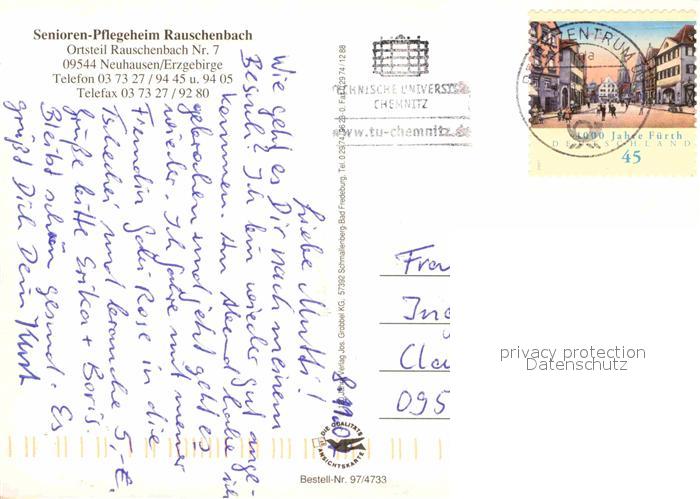 Senioren-Pflegeheim Rauschenbach
Ortsteil Rauschenbach Nr. 7
09544 Neuhausen/Erzgebirge
Telefon 03 73 27 / 94 45 u. 94 05
Telefax 03 73 27 / 92 80
8.11.07
Liebe Mutti!
Wie geht es Dir nach meinem
Besuch? Ich bin wieder gut ange-
kommen. Am Abend habe ich
gebrochen und jetzt geht es
wieder. Ich fahre mit meiner
Freundin Rose in die
Tschechei und brauche 5,-€.
Grüße bitte Erika + Boris.
Bleibt schön gesund. Es
grüßt Dich Dein Kurt
Verlag Jos. Grobbel KG, 57392 Schmallenberg-Bad Fredeburg, Tel. 0 29 74 / 96 29-0, Fax 0 29 74 / 12 88
TECHNISCHE UNIVERSITÄT
CHEMNITZ
www.tu-chemnitz.de
BRIEFZENTRUM
1000 Jahre Fürth
DEUTSCHLAND
45
Frau
Ing
Cla
095
privacy protection
Datenschutz
DIE QUALITÄTS
ANSICHTSKARTE
Bestell-Nr. 97/4733